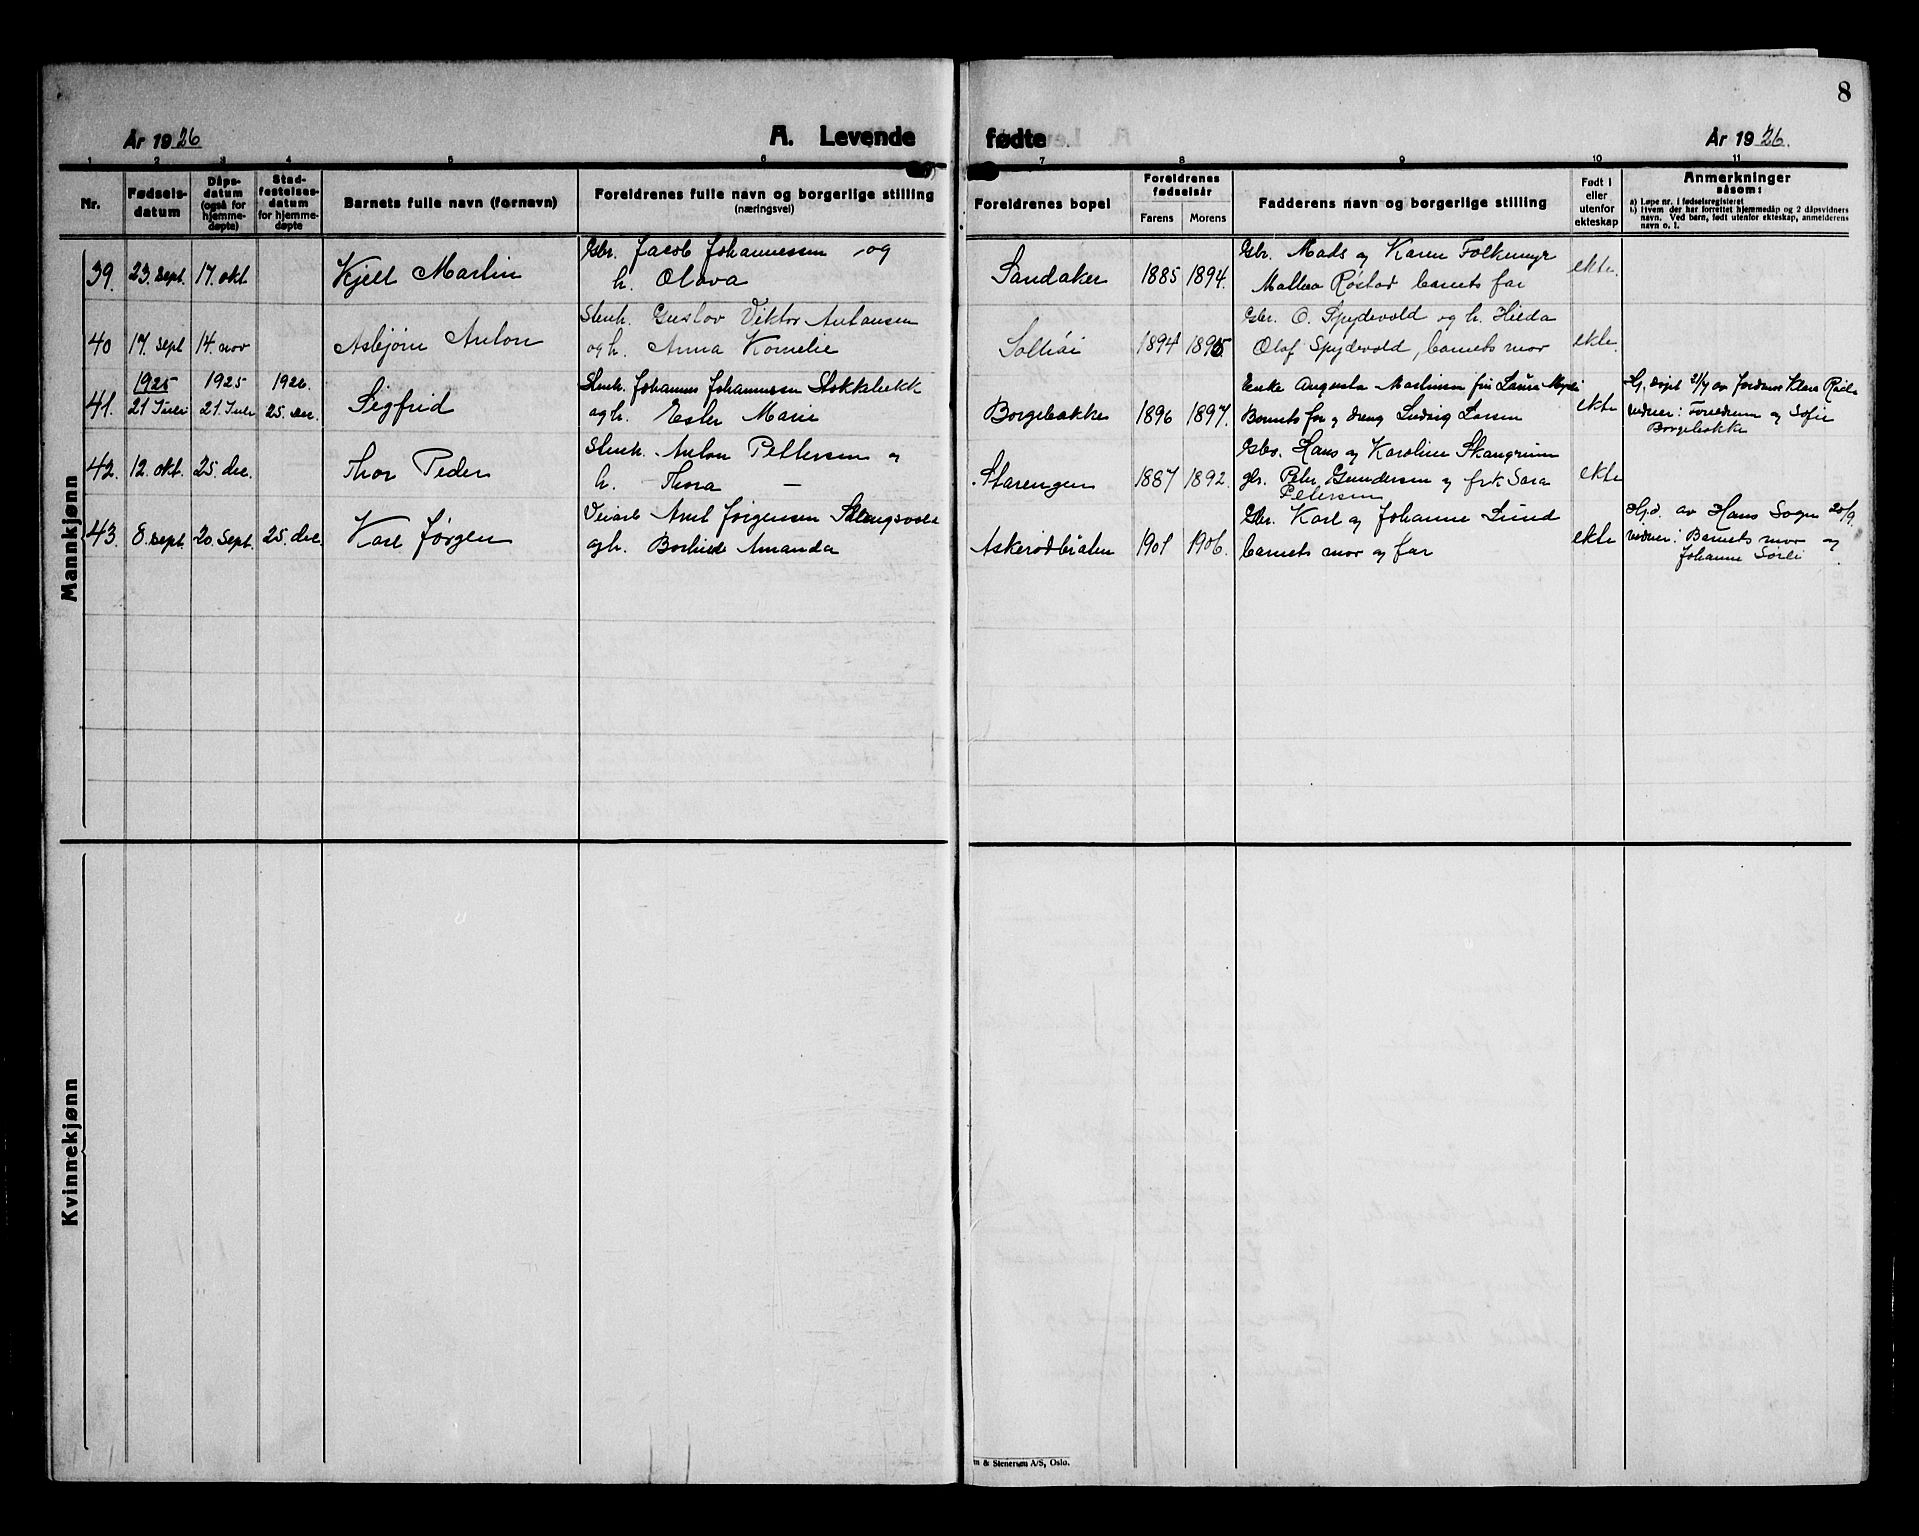 8
År 1926 A. Levende fødte År 1926.
1 2 3 4 5 6 7 8 9 10 11
Nr. Fødselsdatum Dåpsdatum (også for hjemmedøpte) Stadfestelsesdatum for hjemmedøpte Barnets fulle navn (fornavn) Foreldrenes fulle navn og borgerlige stilling (næringsvei) Foreldrenes bopel Foreldrenes fødselsår Farens Morens Fadderens navn og borgerlige stilling Født i eller utenfor ekteskap Anmerkninger såsom:
a) Løpe nr. i fødselsregisteret
b) Hvem der har forrettet hjemmedåp og 2 dåpsvidners navn. Ved barn, født utenfor ekteskap, anmelderens navn o. l.
Mankjønn
Gbr. Jacob Johannessen og Gbr. Mads og Karen Folkemyr
39. 23. sept. 17. okt Kjell Martin h. Olava Sandaker 1885 1894. Mathea Røstad barnets far ekte
Stenh. Gustav Viktor Antansen Gbr. O. Spydevold og h. Hilda
40 17. sept 14. nov Asbjørn Anton og h. Anna Kornelie 1894 1895 Olaf Spydevold, barnets mor ekte.
1925 1925 1926. Stenh. Johannes Johannessen Stokkebekk Enke Augusta Martinsen fru Laura
41. 21 Juli 21. Juli 25. des. Sigfrid og h. Ester Marie Borgebakke 1896 1897. Barnets far og dreng Ludvig Larsen ekte
Hj. døpt 21/7 av Jordmor Klara
vidner: Foreldrene og Sofie
Borgebakke
Stenh. Anton Pettersen og Gbr. Hans og Karoline Skangrum
42. 12. okt. 25. dec. Thor Peder h. Thora — Starengen 1887 1892. gbr. Peter Gundersen og frk Sara Petersen ekte
Veiarb Axel Jørgensen Gbr. Karl og Johanne Lund
43. 8. sept 20. sept. 25. dec Karl Jørgen og h. Borhild Amanda Askerødbråten 1901 1906. barnets mor og far ekte
Hj.d. av Hans Sogn 20/9.
vidner: Barnets mor og
Johanne Sørli
Kvinnekjønn
m & Stenersen A/S, Oslo.